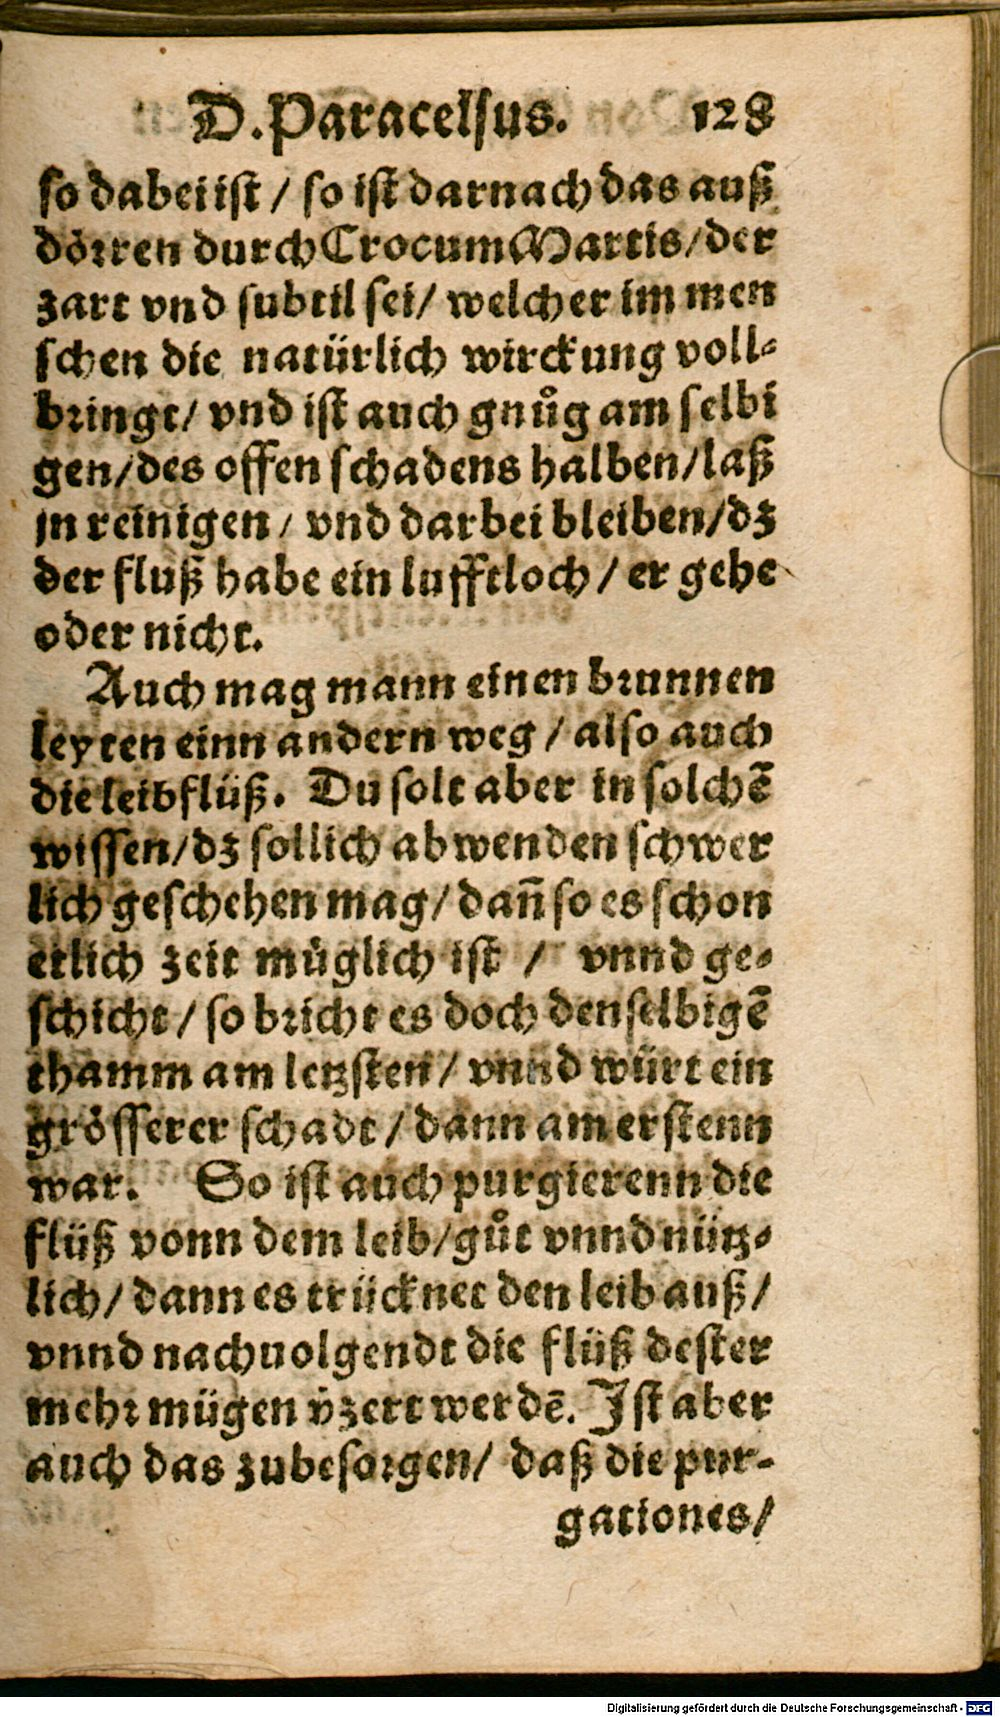 D. Paracelsus. 128
so dabei ist / so ist darnach das auß
dörren durch Crocum Martis / der
zart vnd subtil sei / welcher im men
schen die natürlich wirckung voll⸗
bringt / vnd ist auch gnůg am selbi
gen / des offen schadens halben / laß
jn reinigen / vnd darbei bleiben / dz
der fluß habe ein lufftloch / er gehe
oder nicht.
Auch mag mann einen brunnen
leyten einn andern weg / also auch
die leibflüß. Du solt aber in solchē
wissen / dz sollich abwenden schwer
lich geschehen mag / dañ so es schon
etlich zeit müglich ist / vnnd ge⸗
schicht / so bricht es doch denselbigē
thamm am letzsten / vnnd würt ein
grösserer schadt / dann am erstenn
war. So ist auch purgierenn die
flüß vonn dem leib / gůt vnnd nütz⸗
lich / dann es trücknet den leib auß /
vnnd nachuolgendt die flüß dester
mehr mügen v̈zert werdē. Ist aber
auch das zubesorgen / daß die pur⸗
gationes /
Digitalisierung gefördert durch die Deutsche Forschungsgemeinschaft - DFG